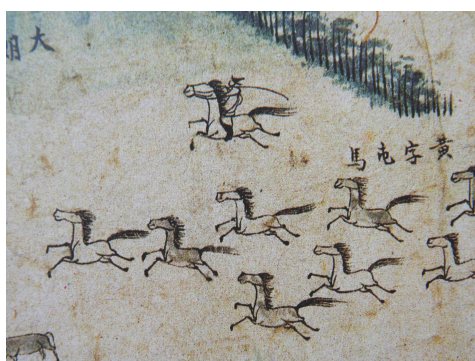 大
黄字屯馬